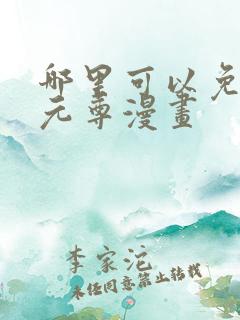 哪里可以免
元尊漫畫
李家沱
未经同意禁止转载